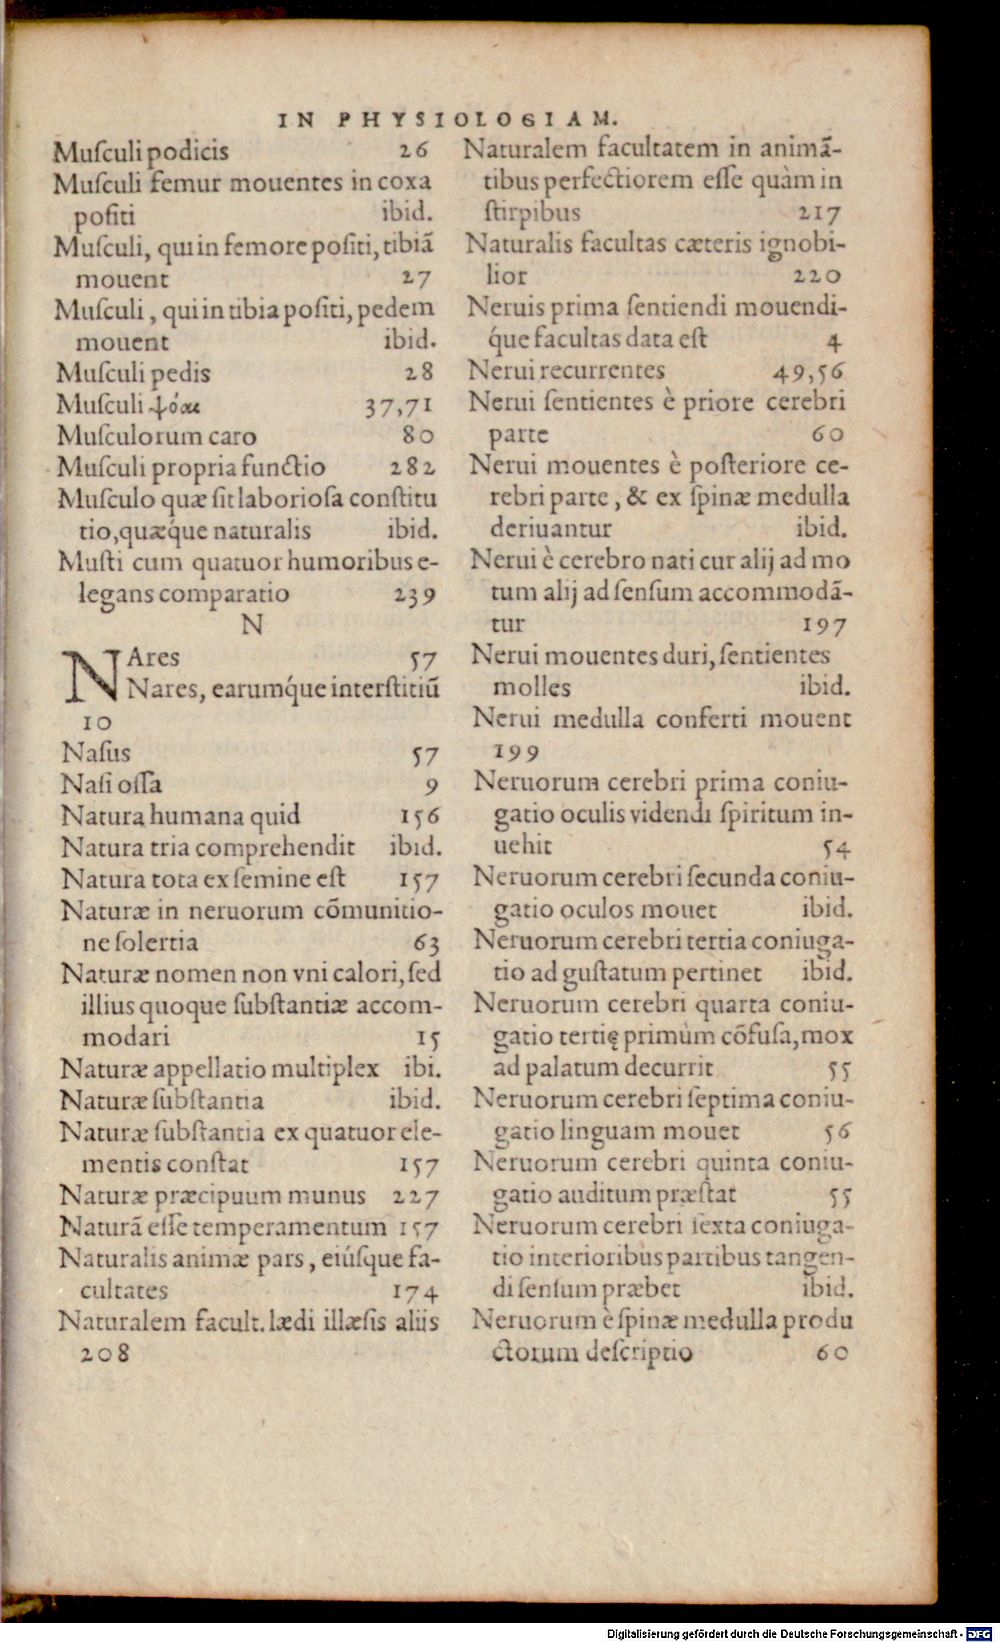 IN PHYSIOLOGIAM.
Muſculi podicis 26
Muſculi femur mouentes in coxa
poſiti ibid.
Muſculi, qui in femore poſiti, tibiã
mouent 27
Muſculi, qui in tibia poſiti, pedem
mouent ibid.
Muſculi pedis 28
Muſculi ψόαι 37,71
Muſculorum caro 80
Muſculi propria functio 282
Muſculo quæ ſit laborioſa conſtitu
tio, quæq́ue naturalis ibid.
Muſti cum quatuor humoribus e-
legans comparatio 239
N
NAres 57
Nares, earumq́ue interſtitiũ
10
Naſus 57
Naſi oſſa 9
Natura humana quid 156
Natura tria comprehendit ibid.
Natura tota ex ſemine eſt 157
Naturæ in neruorum cõmunitio-
ne ſolertia 63
Naturæ nomen non vni calori, ſed
illius quoque ſubſtantiæ accom-
modari 15
Naturæ appellatio multiplex ibi.
Naturæ ſubſtantia ibid.
Naturæ ſubſtantia ex quatuor ele-
mentis conſtat 157
Naturæ præcipuum munus 227
Naturã eſſe temperamentum 157
Naturalis animæ pars, eiúſque fa-
cultates 174
Naturalem facult. lædi illæſis aliis
208
Naturalem facultatem in animã-
tibus perfectiorem eſſe quàm in
ſtirpibus 217
Naturalis facultas cæteris ignobi-
lior 220
Neruis prima ſentiendi mouendi-
q́ue facultas data eſt 4
Nerui recurrentes 49,56
Nerui ſentientes è priore cerebri
parte 60
Nerui mouentes è poſteriore ce-
rebri parte, & ex ſpinæ medulla
deriuantur ibid.
Nerui è cerebro nati cur alij ad mo
tum alij ad ſenſum accommodã-
tur 197
Nerui mouentes duri, ſentientes
molles ibid.
Nerui medulla conferti mouent
199
Neruorum cerebri prima coniu-
gatio oculis videndi ſpiritum in-
uehit 54
Neruorum cerebri ſecunda coniu-
gatio oculos mouet ibid.
Neruorum cerebri tertia coniuga-
tio ad guſtatum pertinet ibid.
Neruorum cerebri quarta coniu-
gatio tertię primùm cõfuſa, mox
ad palatum decurrit 55
Neruorum cerebri ſeptima coniu-
gatio linguam mouet 56
Neruorum cerebri quinta coniu-
gatio auditum præſtat 55
Neruorum cerebri ſexta coniuga-
tio interioribus partibus tangen-
di ſenſum præbet ibid.
Neruorum è ſpinæ medulla produ
ctorum deſcriptio 60
Digitalisierung gefördert durch die Deutsche Forschungsgemeinschaft - DFG